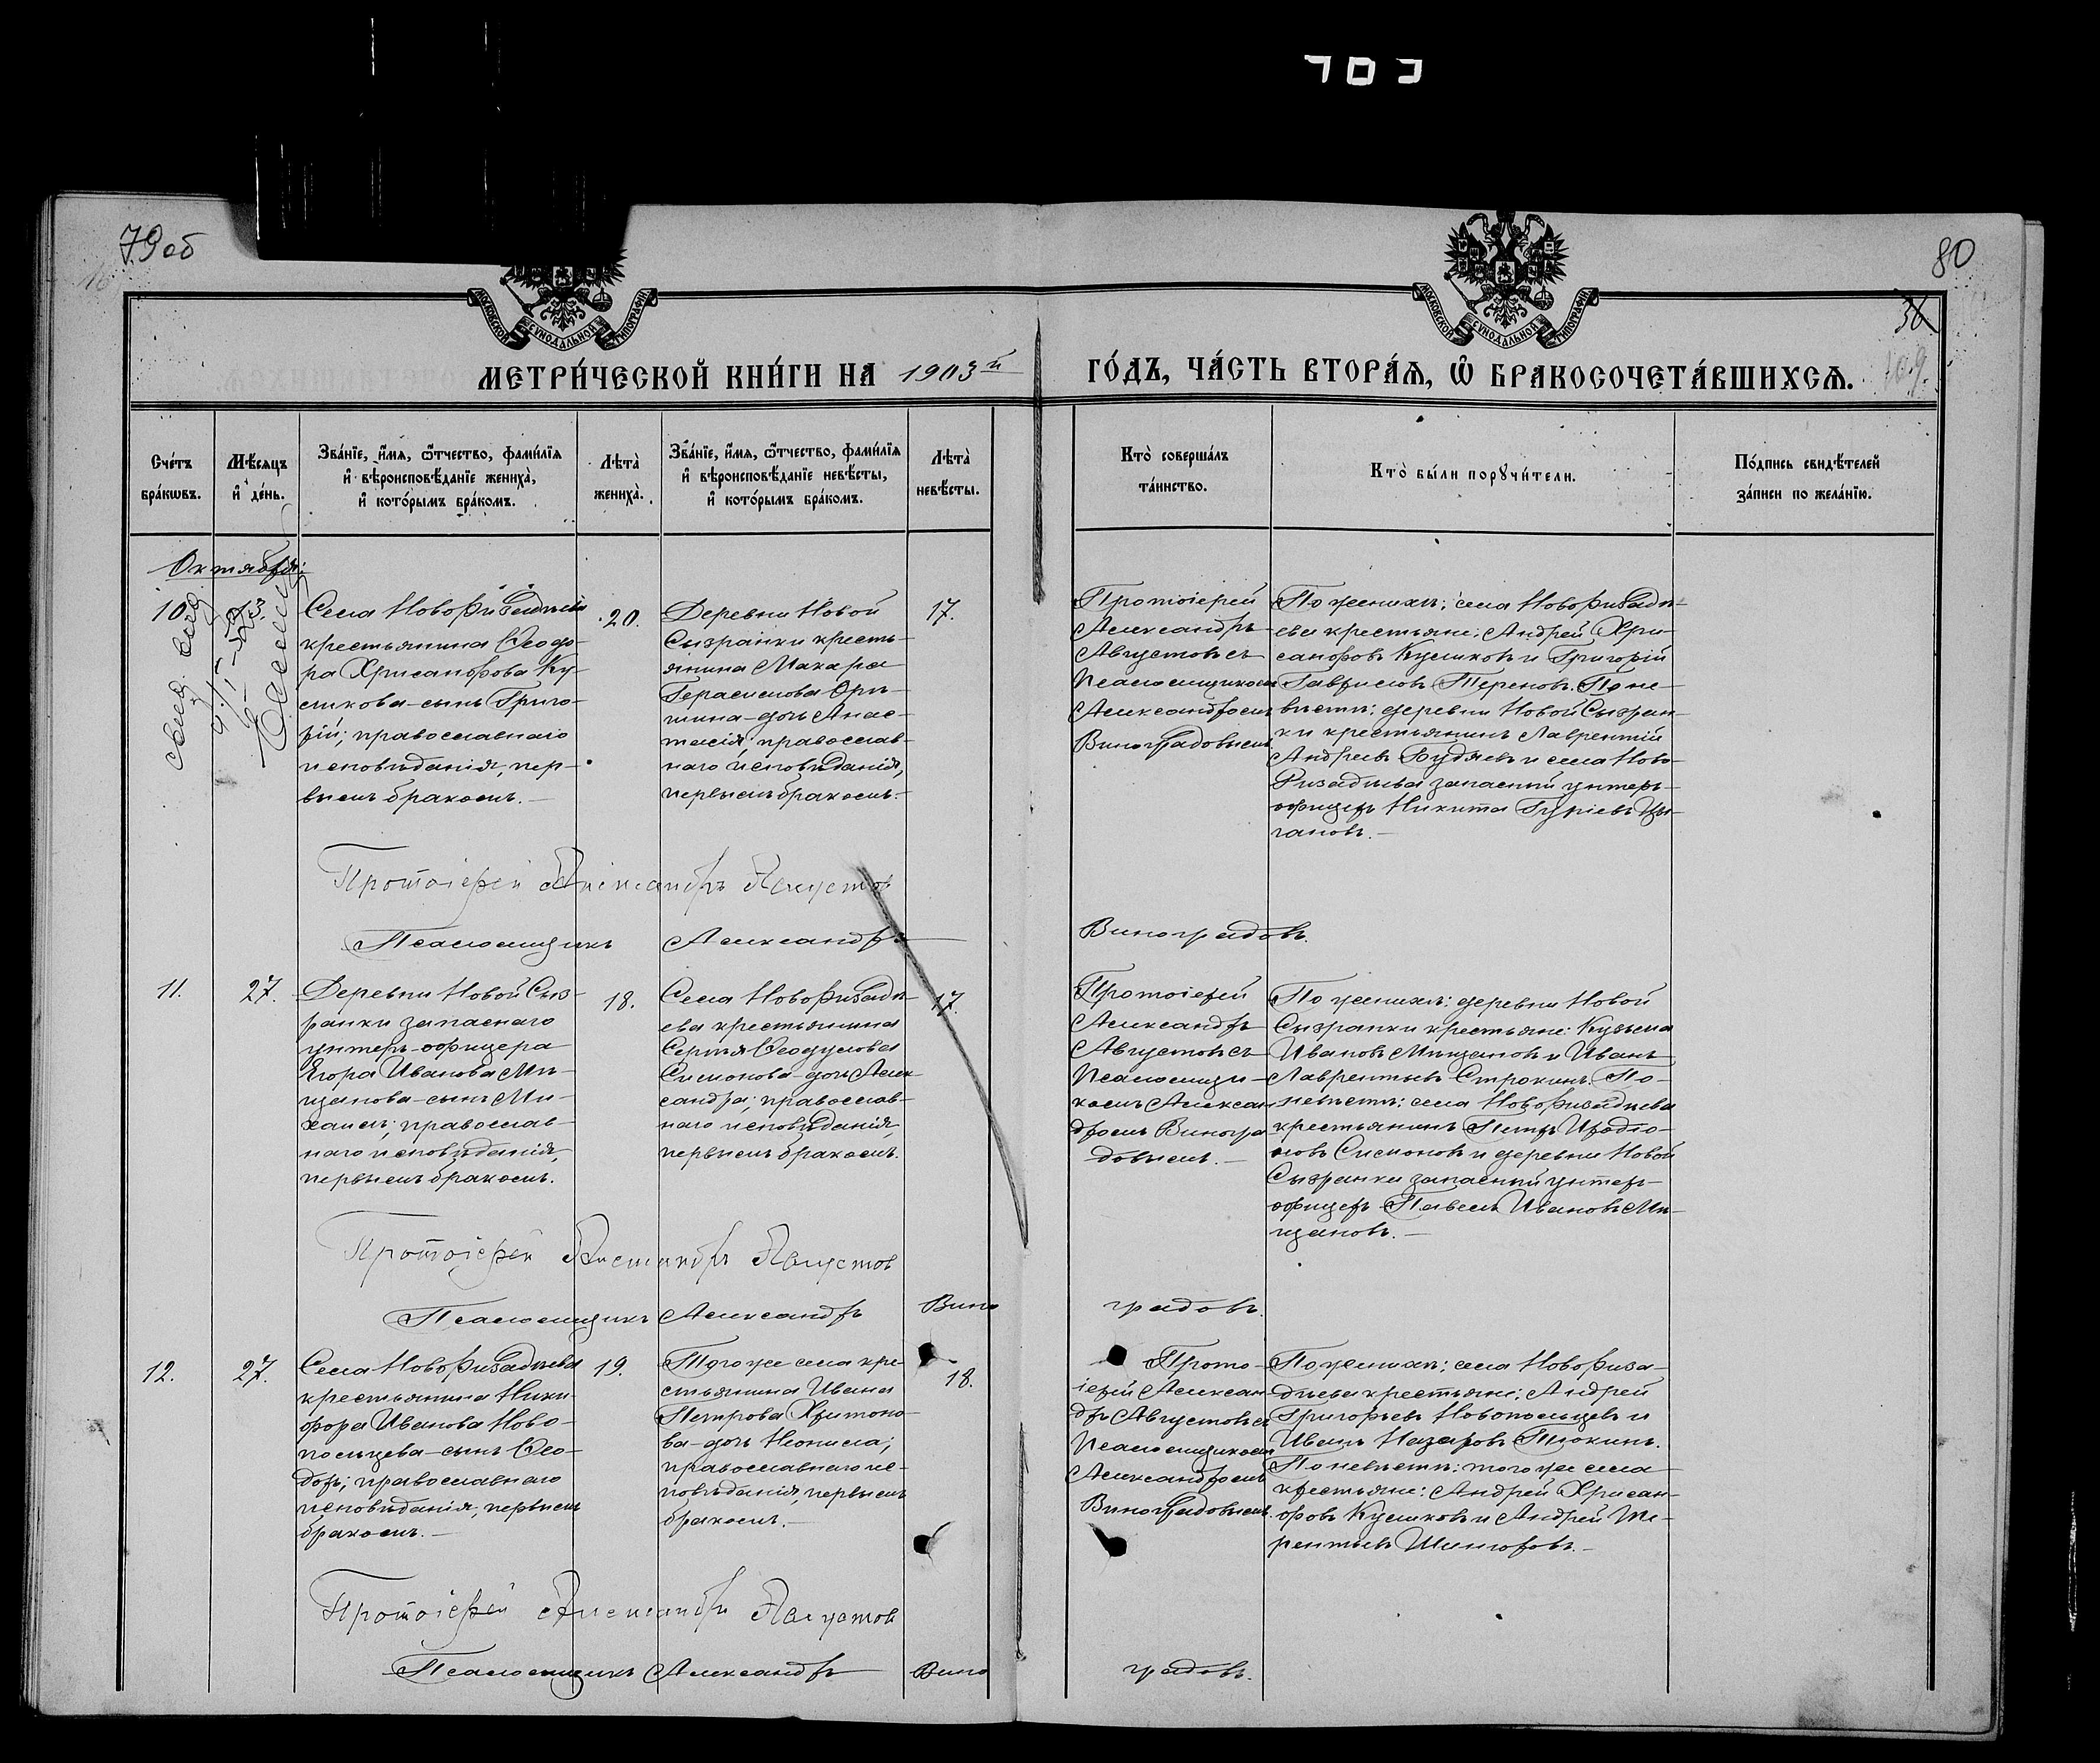 79об
80
36
109.
МОСКОВСКОЙ СѴНОДАЛЬНОЙ ТИПОГРАФІИ
МОСКОВСКОЙ СѴНОДАЛЬНОЙ ТИПОГРАФІИ
МЕТРИ́ЧЕСКОЙ КНИ́ГИ НА 1903й
ГО́ДЪ, ЧА́СТЬ ВТОРА́Ѧ, Ѡ҆ БРАКОСОЧЕТА́ВШИХСѦ.
Сче́тъ
бра́кѡвъ.
Мѣ́сяцъ
и҆ де́нь.
Зва́нїе, и҆́мя, ѻ҆́тчество, фами́лїя
и҆ вѣроисповѣ́данїе жениха̀,
и҆ кото́рымъ бра́комъ.
Лѣта̀
жениха̀.
Зва́нїе, и҆́мя, ѻ҆́тчество, фами́лїя
и҆ вѣроисповѣ́данїе невѣ́сты,
и҆ кото́рымъ бра́комъ.
Лѣта̀
невѣ́сты.
Кто̀ соверша́лъ
та́инство.
Кто̀ бы́ли порꙋчи́тели.
По́дпись свидѣ́телей
за́писи по жела́нїю.
Октября:
10.
13.
Села Новоризадѣева
крестьянина Ѳеодо-
ра Хрисанфова Ку-
ликова-сынъ Григо-
рій; православнаго
исповѣданія, пер-
вымъ бракомъ.—
20.
Деревни Новой
Сызранки кресть-
янина Макара
Герасимова Ори-
шина-дочь Анас-
тасія; православ-
наго исповѣданія,
первымъ бракомъ.—
17.
Протоіерей
Александръ
Августовъ съ
Псаломщикомъ
Александромъ
Виноградовымъ
По женихѣ: села Новоризадѣ-
ева крестьяне: Андрей Хри-
санфовъ Куликовъ и Григорій
Гавриловъ Череновъ. По не-
вѣстѣ: деревни Новой Сызран-
ки крестьянинъ Лаврентій
Андреевъ Будяевъ и села Ново-
Ризадѣева запасный унтеръ-
офицеръ Никита Гуріевъ Цы-
гановъ.—
Протоіерей Александръ Августовъ
Псаломщикъ Александръ Виноградовъ.
11.
27.
Деревни Новой Сыз-
ранки запаснаго
унтеръ-офицера
Егора Иванова Мѣ-
щанова-сынъ Ми-
хаилъ; православ-
наго исповѣданія,
первымъ бракомъ.
18.
Села Новоризадѣ-
ева крестьянина
Сергія Ѳеодулова
Симонова-дочь Алек-
сандра; православ-
наго исповѣданія,
первымъ бракомъ.
17.
Протоіерей
Александръ
Августовъ съ
Псаломщи-
комъ Алексан-
дромъ Виногра-
довымъ.—
По женихѣ: деревни Новой
Сызранки крестьяне: Кузьма
Ивановъ Мѣщановъ и Иванъ
Лаврентьевъ Строкинъ. По-
невѣстѣ: села Новоризадѣева
крестьянинъ Петръ Иродіо-
новъ Симоновъ и деревни Новой
Сызранки запасный унтеръ-
офицеръ Павелъ Ивановъ Мѣ-
щановъ.—
Протоіерей Александръ Августовъ
Псаломщикъ Александръ Виноградовъ.
12.
27.
Села Новоризадѣева
крестьянина Ники-
фора Иванова Ново-
польцева-сынъ Ѳео-
доръ; православнаго
исповѣданія, первымъ
бракомъ.—
19.
Того же села кре-
стьянина Ивана
Петрова Харитоно-
ва-дочь Неонила;
православнаго ис-
повѣданія, первымъ
бракомъ.—
18.
Прото-
іерей Алексан-
дръ Августовъ съ
Псаломщикомъ
Александромъ
Виноградовымъ.
По женихѣ: села Новориза-
дѣева крестьяне: Андрей
Григорьевъ Новопольцевъ и
Иванъ Назаровъ Тюкинъ.
По невѣстѣ: того же села
крестьяне: Андрей Хрисан-
фовъ Куликовъ и Андрей Те-
рентьевъ Шинюровъ.—
Протоіерей Александръ Августовъ
Псаломщикъ Александръ Виноградовъ.